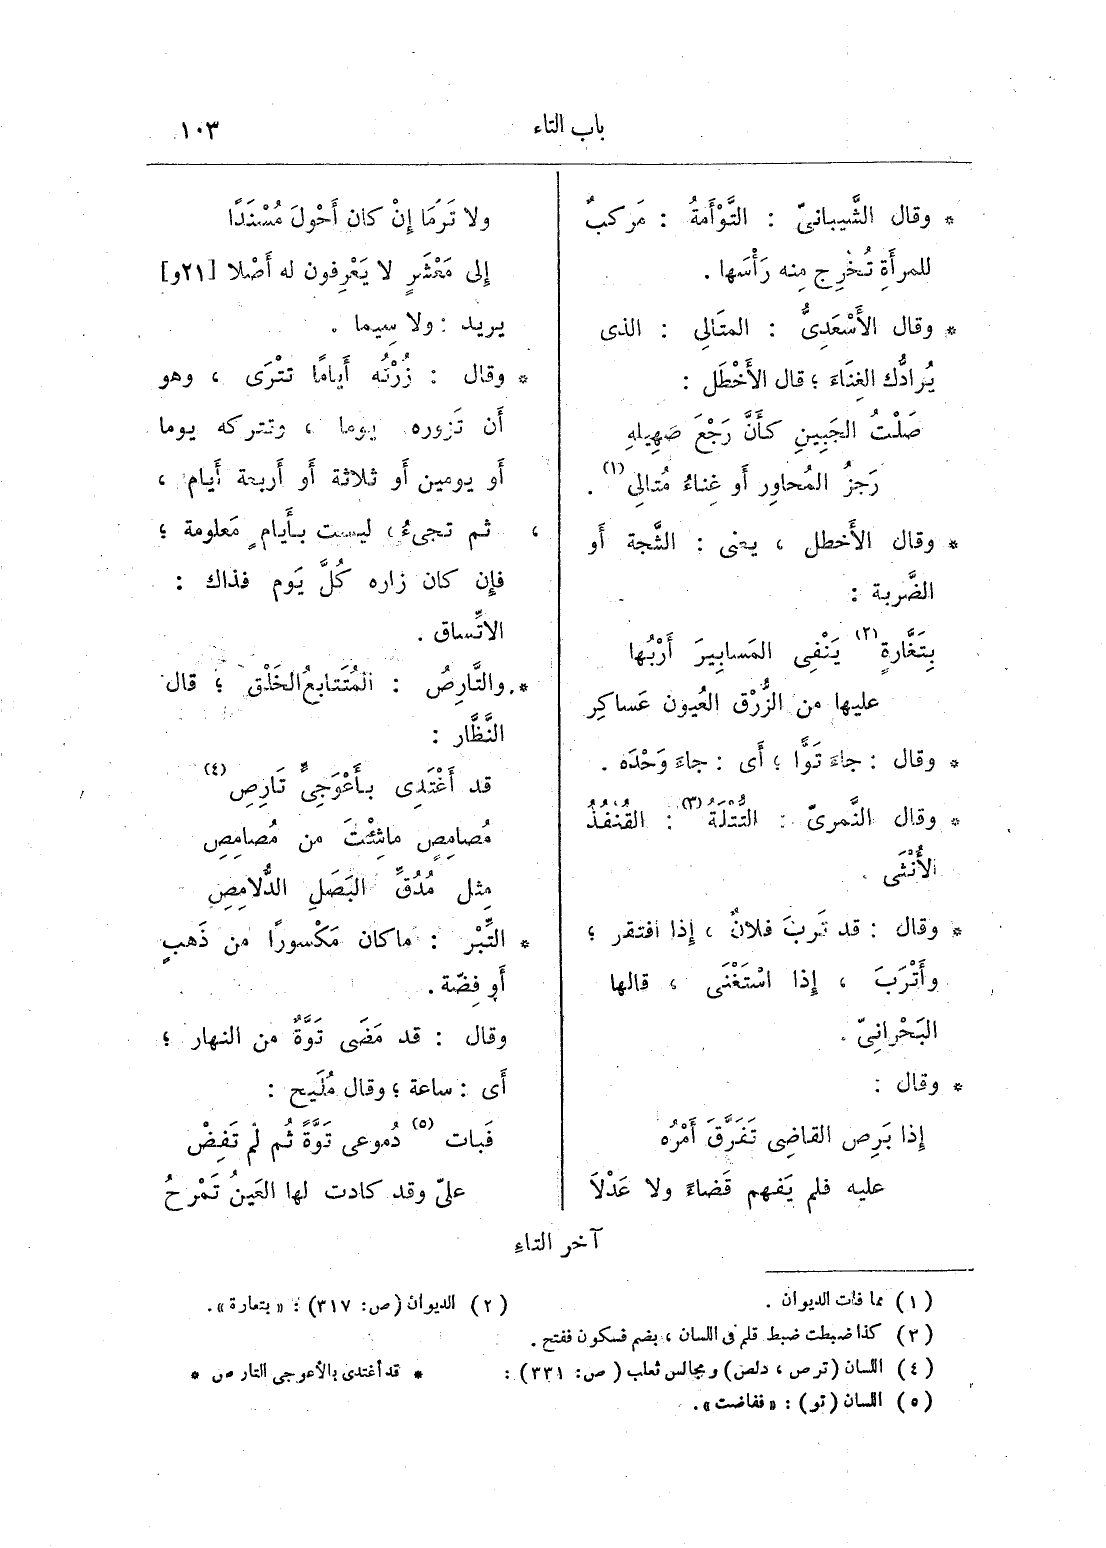 باب التاء
١٠٣
* وقال الشَّيبانىّ : التَّوْأَمةُ : مَركبٌ
للمرأَةِ تُخْرِج مِنه رَأْسَها .
* وقال الأَسْعَدِىُّ : المتَالِى : الذى
يُرادُّك الغِنَاءَ ؛ قال الأَخْطَل :
صَلْتُ الجَبِينِ كأَنَّ رَجْعَ صَهِيلهِ
رَجزُ المُحاوِر أَو غِناءُ مُتالِى (١) .
* وقال الأَخطل ، يعنى : الشَّجة أَو
الضَّربة :
بِتَغَّارةٍ (٢) يَنْفِى المَسابِيرَ أَرْبُها
عليها من الزُّرْق العُيون عَساكِر
* وقال : جاءَ تَوًّا ؛ أَى : جاءَ وَحْدَه .
* وقال النَّمرىّ : التُّتْلَةُ (٣) : القُنْفُذُ
الأُنْثَى .
* وقال : قد تَرِبَ فلانٌ ، إِذا افتقر ؛
وأَتْرَبَ ، إِذا اسْتَغْنَى ، قالها
البَحْرانِىّ .
* وقال :
إِذا بَرِص القاضِى تَفَرَّقَ أَمْرُه
عليه فلم يَفهم قَضاءً ولا عَدْلَا
ولا تَرَمَا إِنْ كان أَحْولَ مُسْنَدًا
إلى مَعْشَرٍ لا يَعْرِفون له أَصْلا [٢١و]
يريد : ولا سِيما .
* وقال : زُرْتُه أَيامًا تتْرَى ، وهو
أَن تَزوره يوما ، وتتركه يوما
أَو يومين أَو ثلاثة أَو أَربعة أَيام ،
ثم تجىءُ ، ليست بأَيامٍ مَعلومة ؛
فإِن كان زاره كُلَّ يَوم فذاك :
الاتِّساق .
* والتَّارِصُ : المُتَتابعُ الخَلْق ؛ قال
النَّظَّار :
قد أَغْتَدِى بأَعْوَجِىٍّ تَارِصِ (٤)
مُصامِصٍ ماشِئْتَ من مُصامِصِ
مِثل مُدُقِّ البَصَلِ الدُّلامِصِ
* التِّبْر : ماكان مَكْسورًا من ذَهبٍ
أَو فِضّة .
وقال : قد مَضَى تَوَّةٌ من النهار ؛
أَى : ساعة ؛ وقال مُلَيح :
فَبات (٥) دُموعى تَوَّةً ثُم لْم تَفِضْ
علىّ وقد كادت لها العَينُ تَمْرحُ
آخر التاءِ
(١) مما فات الديوان .
(٢) الديوان (ص: ٣١٧) : « بتعارة » .
(٣) كذا ضبطت ضبط قلم فى اللسان ، بضم فسكون ففتح .
(٤) اللسان (ترص ، دلص) ومجالس ثعلب (ص: ٣٣١) : * قد أغتدى بالأعوجى التارص *
(٥) اللسان (تو) : « ففاضت » .